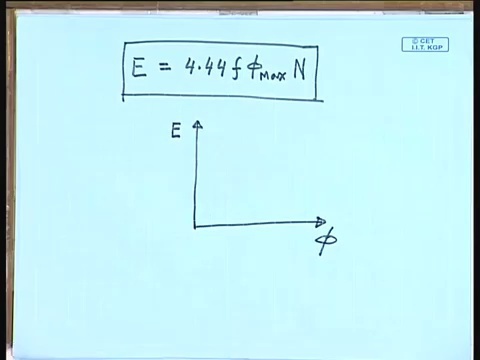 © CET
I.I.T. KGP
E = 4.44 f ϕMax N
E
ϕ